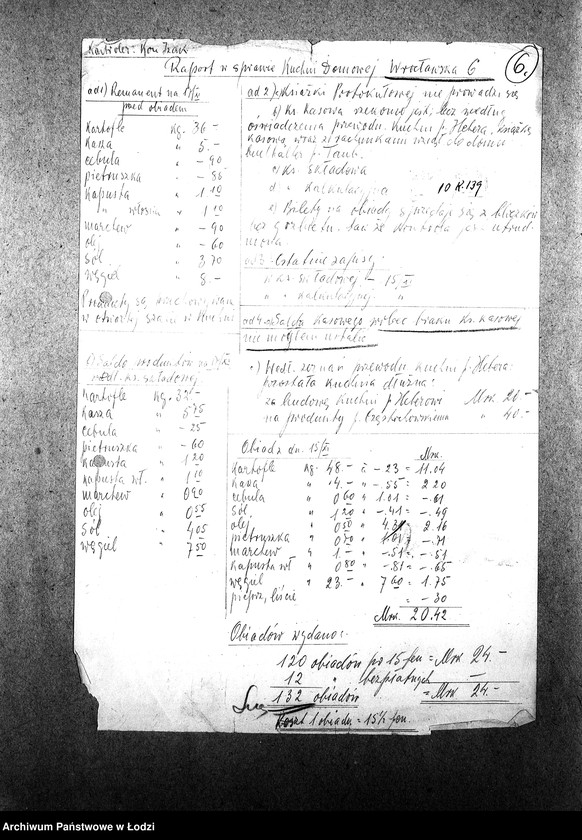 Kontroler: Kon Izak
Raport w sprawie Kuchni Domowej Wrocławska 6
6.
ad 1) Remanent na 15/XI
przed obiadem
Kartofle kg. 36 -
Kasza " 5 -
cebula " - 90
pietruszka " - 85
Kapusta " 1 10
" włoska " 1 10
marchew " - 90
olej " - 60
Sól " 3 70
węgiel " 8 -
Produkty są przechowywane
w otwartej szafie w Kuchni
Saldo produktów na 15/XI
wedł. kr. składowej
Kartofle kg. 32 -
Kasza " 5 75
cebula " - 25
pietruszka " - 60
Kapusta " 1 20
Kapusta wł. " 1 10
marchew " 0 90
olej " 0 55
Sól " 4 05
węgiel " 7 50
ad 2) a) Książki Protokułowej nie prowadzi się
b) Ks. Kasowa
oświadczenia przewodn. Kuchni p. Hebera, książkę
Kasową wraz z rachunkami wziął do domu
buchalter p. Taub.
c) Kr. składowa
d) " Kalkulacyjna
10 K. 139
e) Bilety na obiady sprzedaje się z bloczków
bez grzbietu, tak że kontrola jest utrud-
niona
ad 3. Ostatnie zapisy:
w kr. składowej - 15/XI
" " kalkulacyjnej "
ad 4. Salda Kasowego wobec braku Kr. Kasowej
nie mogłem ustalić
Wedł. zeznań przewodn. kuchni p. Hebera
pozostała kuchnia dłużna:
za budowę kuchni p. Heberowi Mk. 20.-
na produkty p. Częstochowskiemu " 40.-
Obiady dn. 15/XI Mrk.
Kartofle kg. 48.- à - 23 = 11.04
Kasza " 4.- " - 55 = 2 20
cebula " 0 60 " 1.01 = - 61
Sól " 1 20 " - 41 = - 49
olej " 0 50 " 4.31 = 2.16
pietruszka " 0 70 " 1.01 = - 71
marchew " 1.- " - 51 = - 51
Kapusta wł " 0 80 " - 81 = - 65
węgiel " 23.- " 7 60 = 1.75
pieprz, liście = - 30
Mrk. 20.42
Obiadów wydano:
120 obiadów po 15 fen = Mrk 24.-
12 " bezpłatnych -
132 obiadów = Mrk 24.-
Koszt 1 obiadu = 15 1/2 fen.
Archiwum Państwowe w Łodzi